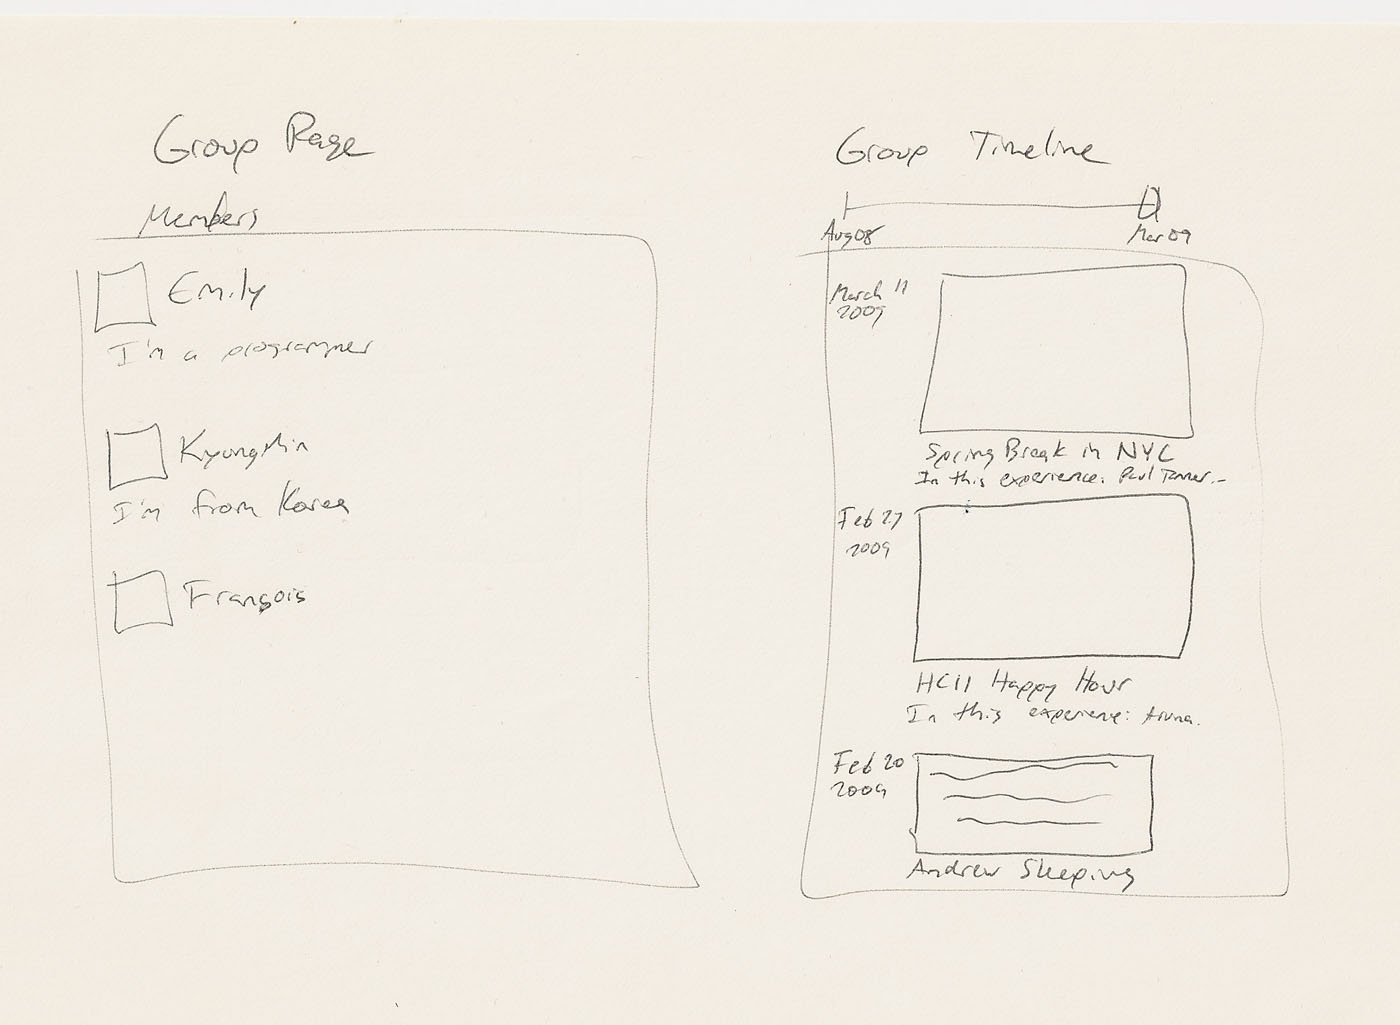 Group Page
Members
Emily
I'm a programmer
KyungMin
I'm from Korea
François
Group Timeline
Aug 08
Mar 09
March 11
2009
Spring Break in NYC
In this experience: Paul Tanner..
Feb 27
2009
HCII Happy Hour
In this experience:
Feb 20
2009
Andrew Sleeping